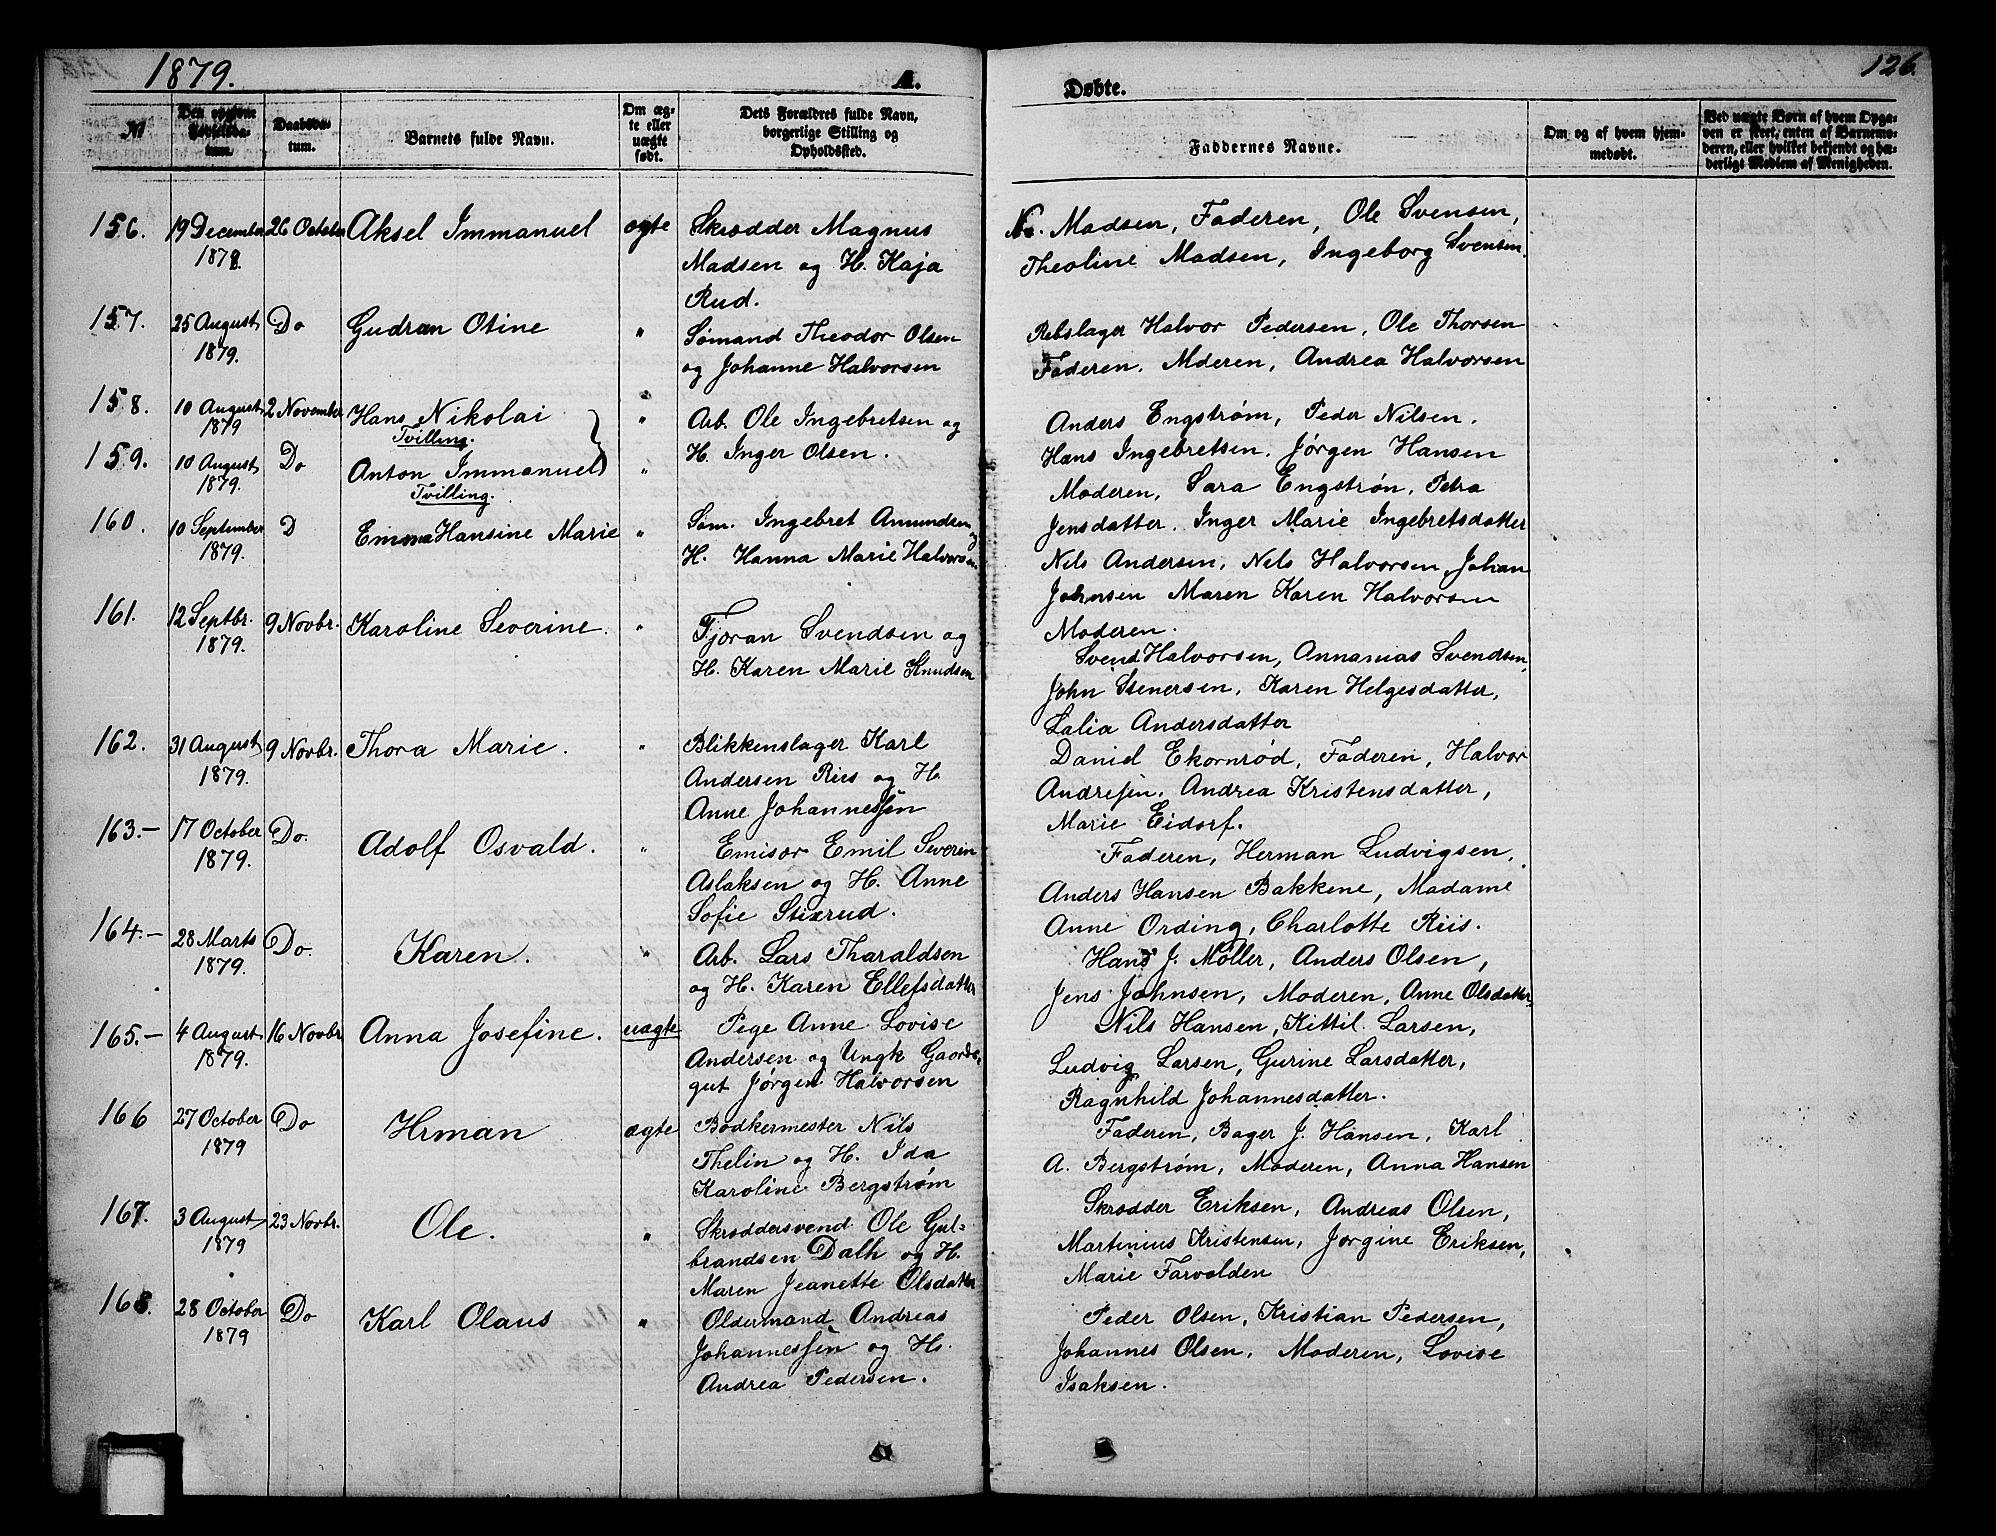 1879.
A.
Døbte.
126.
№
Den opgivne Fødselsdatum.
Daabsdatum.
Barnets fulde Navn.
Om ægte eller uægte født.
Dets Forældres fulde Navn, borgerlige Stilling og Opholdssted.
Faddernes Navne.
Om og af hvem hjemmedøbt.
Ved uægte Børn af hvem Opgaven er skeet, enten af Barnemoderen, eller hvilket bekjendt og hæderligt Medlem af Menigheden.
156. 19 December 26 October Aksel Immanuel ægte Skrædder Magnus
1878. Madsen og H. Kaja
Rud.
Madsen, Faderen, Ole Svensen,
Theoline Madsen, Ingeborg Svensen.
157. 25 August Do Gudrun Otine " Sømand Theodor Olsen
1879. og Johanne Halvorsen
Rebslager Halvor Pedersen, Ole Thorsen
Faderen. Moderen, Andrea Halvorsen
158. 10 August 2 November Hans Nikolai " Arb. Ole Ingebretsen og
1879 Tvilling. H. Inger Olsen.
159. 10 August Do Anton Immanuel "
1879. Tvilling.
Anders Engstrøm, Peder Nilsen.
Hans Ingebretsen. Jørgen Hansen
Moderen, Sara Engstrøn, Petra
Jensdatter. Inger Marie Ingebretsdatter
160. 10 September D Emma Hansine Marie " Søm. Ingebret Amundsen og
1879. H. Hanna Marie Halvorsen
Nils Andersen, Nils Halvorsen, Johan
Johnsen Maren Karen Halvorsen
Moderen.
161. 12 Septbr. 9 Novbr. Karoline Severine. " Tjøran Svendsen og
1879. H. Karen Marie Knudsen
Svend Halvorsen, Annanias Svendsen,
John Stenersen, Karen Helgesdatter,
Lalia Andersdatter
162. 31 August 9 Novbr. Thora Marie. " Blikkenslager Karl
1879. Andersen Riis og H.
Anne Johannesſen
Daniel Ekornrød, Faderen, Halvor
Andreſen. Andrea Kristensdatter,
Marie Eidorf.
163.- 17 October Do. Adolf Osvald. " Emisør Emil Severin
1879. Aslaksen og H. Anne
Sofie Stixrud.
Faderen, Herman Ludvigsen,
Anders Hansen Bakkene, Madame
Anne Ording, Charlotte Riis.
164.- 28 Marts Do. Karen. " Arb. Lars Tharaldsen
1879. og H. Karen Ellefsdatter
Hans J. Møller, Anders Olsen,
Jens Johnsen, Moderen, Anne Olsdatter
165.- 4 August 16 Novbr Anna Josefine. uægte Pege Anne Lovise
1879. Andersen og Ungk Gaards-
gut Jørgen Halvorsen
Nils Hansen, Kittil Larsen,
Ludvig Larsen, Gurine Larsdatter,
Ragnhild Johannesdatter.
166 27 October Do Hrman ægte Bødkermester Nils
1879 Thelin og H. Ida
Karoline Bergstrøm
Faderen, Bager J. Hansen, Karl
A. Bergstrøm, Moderen, Anna Hansen
167. 3 August 23 Novbr. Ole. " Skræddersvend Ole Gul-
1879 brandsen Dalh og H.
Maren Jeanette Olsdatter
Skrædder Eriksen, Andreas Olsen,
Martinius Kristensen, Jørgine Eriksen,
Marie Farvolden
168. 28 October Do Karl Olaus " Oldermand Andreas
1879 Johannesſen og H.
Andrea Pedersen.
Peder Olsen, Kristian Pedersen,
Johannes Olsen, Moderen, Lovise
Isaksen.